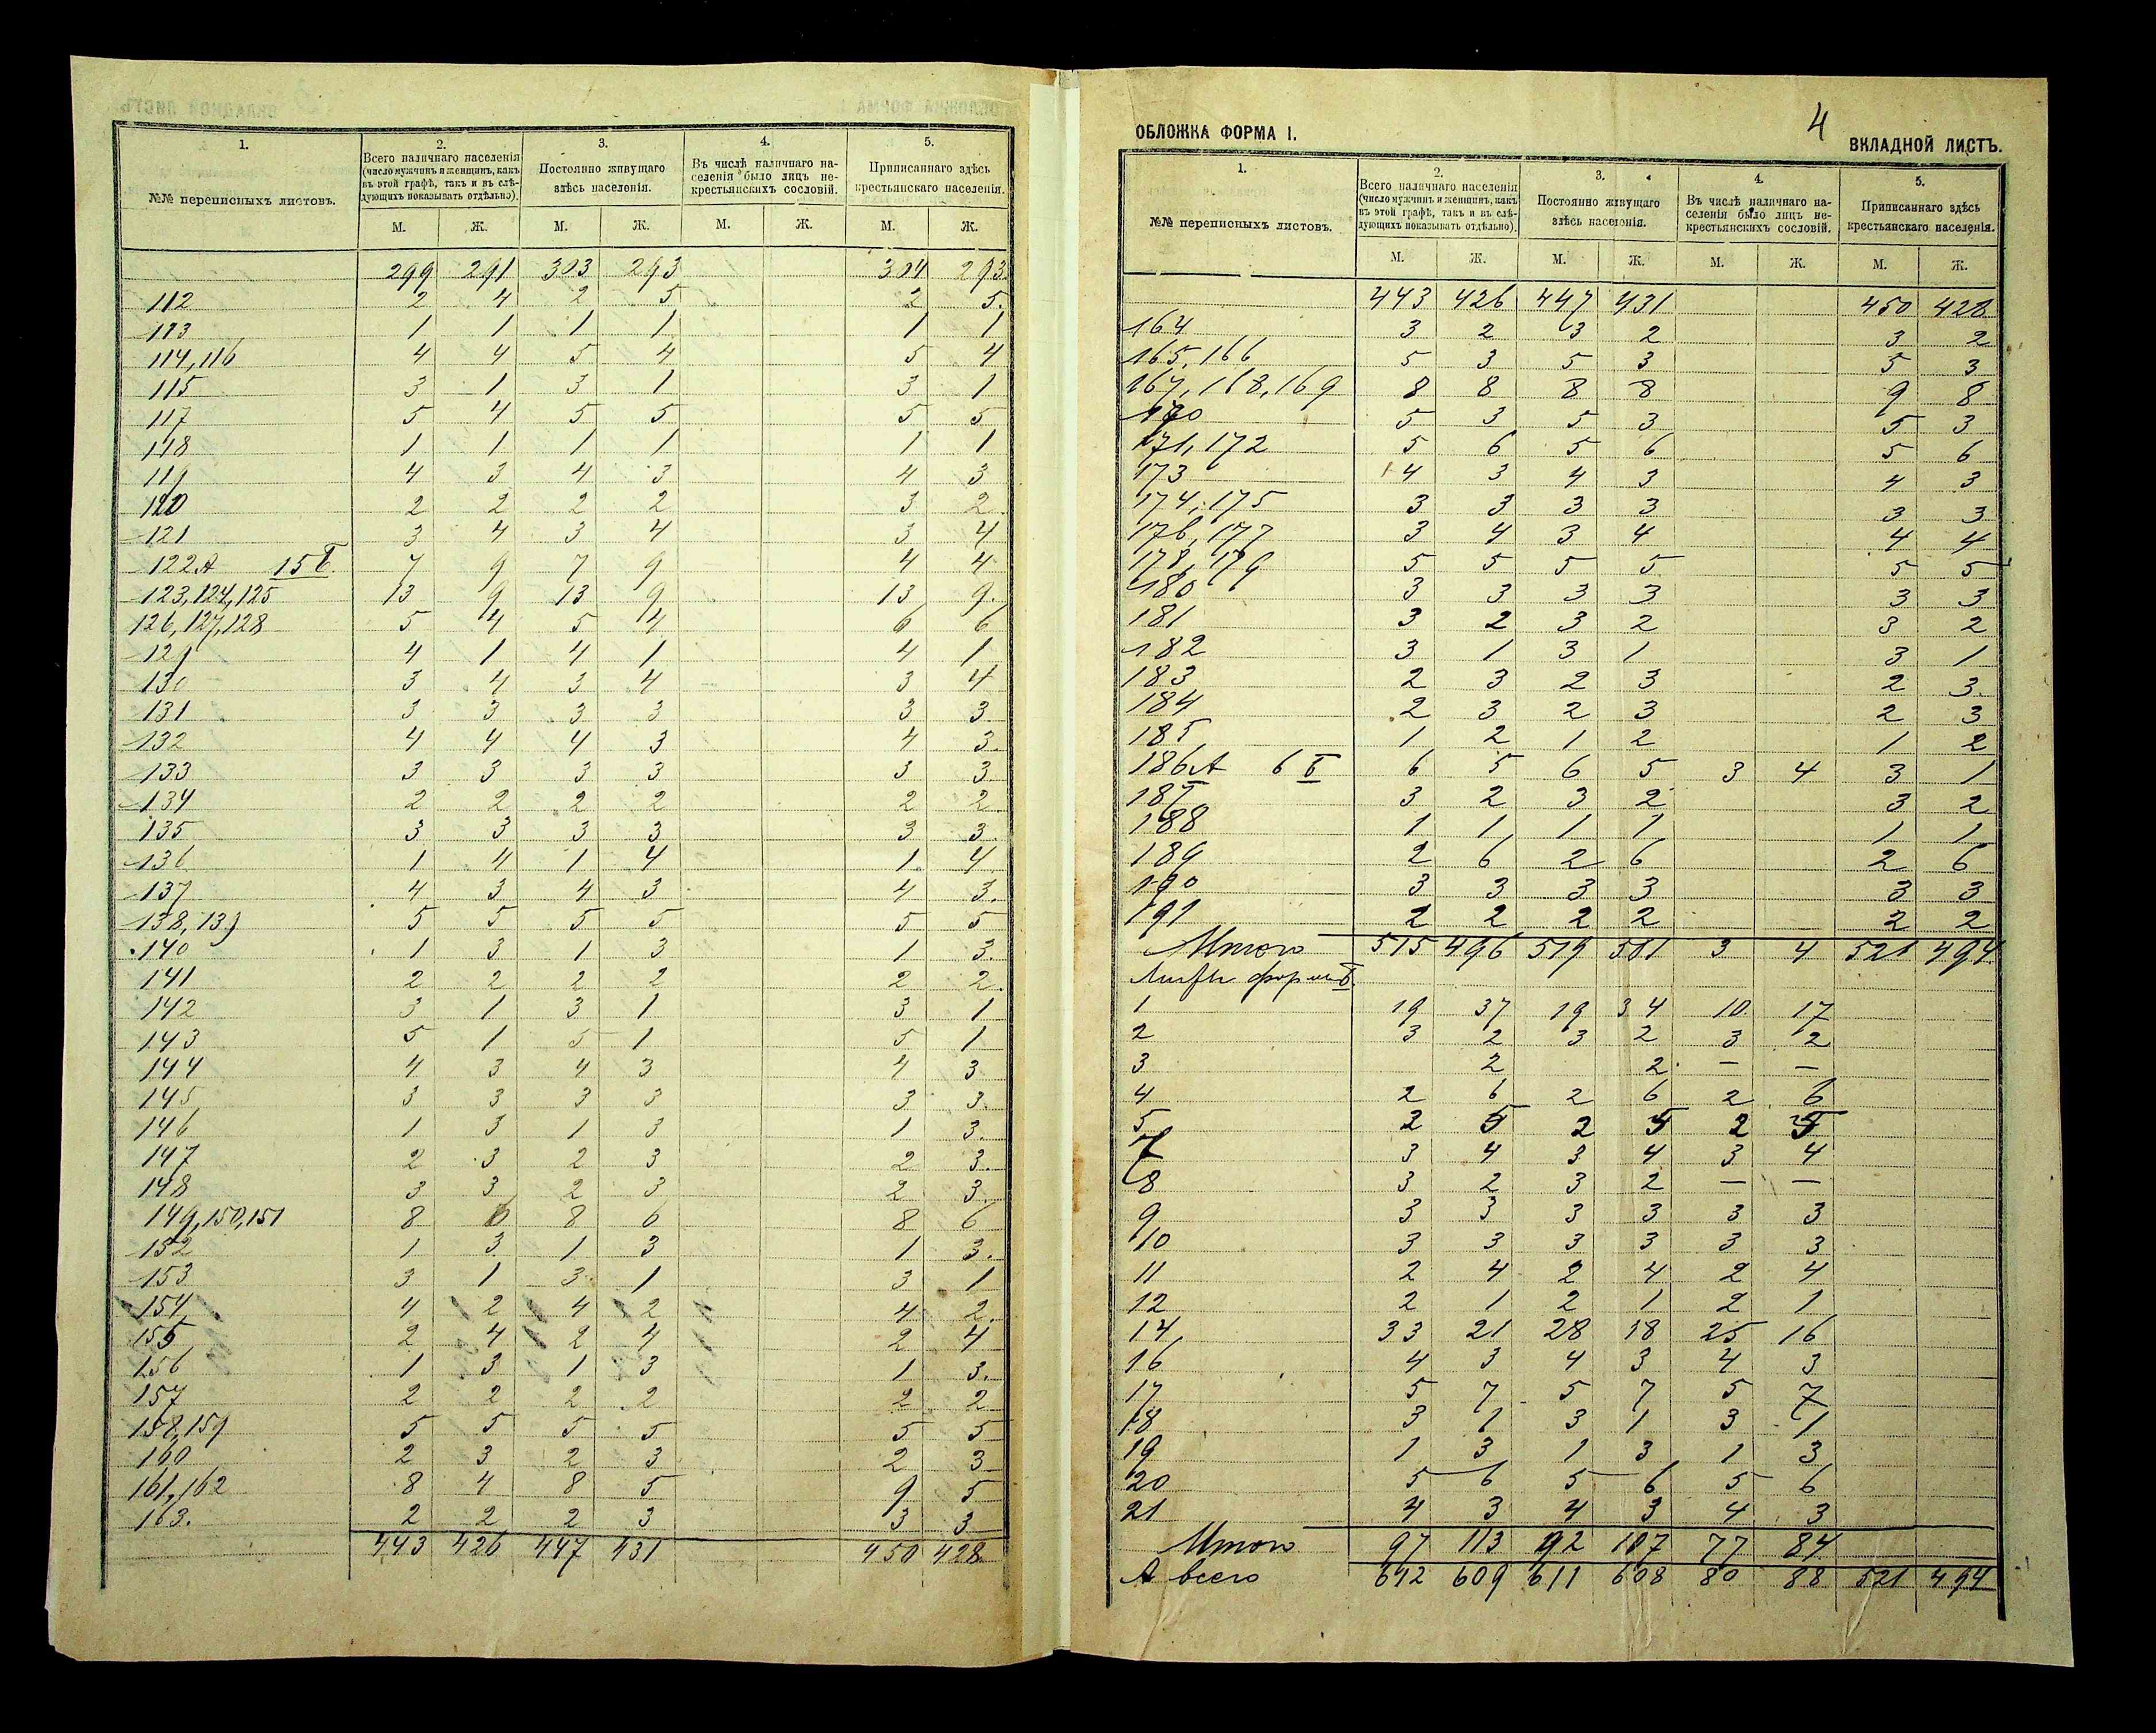 1. 2. 3. 4. 5.
№№ переписныхъ листовъ. Всего наличнаго населенія (число мужчинъ и женщинъ, какъ въ этой графѣ, такъ и въ слѣдующихъ показывать отдѣльно). Постоянно живущаго здѣсь населенія. Въ числѣ наличнаго населенія было лицъ некрестьянскихъ сословій. Приписаннаго здѣсь крестьянскаго населенія.
М. Ж. М. Ж. М. Ж. М. Ж.
299 291 303 293 304 293
112 2 4 2 5 2 5.
113 1 1 1 1 1 1
114, 116 4 4 5 4 5 4
115 3 1 3 1 3 1
117 5 4 5 5 5 5
118 1 1 1 1 1 1
119 4 3 4 3 4 3
120 2 2 2 2 3 2
121 3 4 3 4 3 4
122А 15Б 7 9 7 9 4 4
123, 124, 125 13 9 13 9 13 9.
126, 127, 128 5 4 5 4 6 6
129 4 1 4 1 4 1
130 3 4 3 4 3 4
131 3 3 3 3 3 3
132 4 4 4 3 4 3.
133 3 3 3 3 3 3
134 2 2 2 2 2 2
135 3 3 3 3 3 3
136 1 4 1 4 1 4
137 4 3 4 3 4 3.
138, 139 5 5 5 5 5 5
140 1 3 1 3 1 3.
141 2 2 2 2 2 2.
142 3 1 3 1 3 1
143 5 1 5 1 5 1
144 4 3 4 3 4 3
145 3 3 3 3 3 3.
146 1 3 1 3 1 3.
147 2 3 2 3 2 3.
148 3 3 2 3 2 3.
149, 150, 151 8 6 8 6 8 6
152 1 3 1 3 1 3.
153 3 1 3 1 3 1
154 4 2 4 2 4 2.
155 2 4 2 4 2 4
156 1 3 1 3 1 3.
157 2 2 2 2 2 2
158, 159 5 5 5 5 5 5
160 2 3 2 3 2 3
161, 162 8 4 8 5 9 5
163. 2 2 2 3 3 3
443 426 447 431 450 428
4
ОБЛОЖКА ФОРМА I. ВКЛАДНОЙ ЛИСТЪ.
1. 2. 3. 4. 5.
№№ переписныхъ листовъ. Всего наличнаго населенія (число мужчинъ и женщинъ, какъ въ этой графѣ, такъ и въ слѣдующихъ показывать отдѣльно). Постоянно живущаго здѣсь населенія. Въ числѣ наличнаго населенія было лицъ некрестьянскихъ сословій. Приписаннаго здѣсь крестьянскаго населенія.
М. Ж. М. Ж. М. Ж. М. Ж.
443 426 447 431 450 428
164 3 2 3 2 3 2
165, 166 5 3 5 3 5 3
167, 168, 169 8 8 8 8 9 8
170 5 3 5 3 5 3
171, 172 5 6 5 6 5 6
173 4 3 4 3 4 3
174, 175 3 3 3 3 3 3
176, 177 3 4 3 4 4 4
178, 179 5 5 5 5 5 5
180 3 3 3 3 3 3
181 3 2 3 2 3 2
182 3 1 3 1 3 1
183 2 3 2 3 2 3
184 2 3 2 3 2 3
185 1 2 1 2 1 2
186А 6Б 6 5 6 5 3 4 3 1
187 3 2 3 2 3 2
188 1 1 1 1 1 1
189 2 6 2 6 2 6
190 3 3 3 3 3 3
191 2 2 2 2 2 2
Итого 515 496 519 501 3 4 521 494
Листы формы Б.
1 19 37 19 34 10 17
2 3 2 3 2 3 2
3 2 2 — —
4 2 6 2 6 2 6
5 2 5 2 5 2 5
7 3 4 3 4 3 4
8 3 2 3 2 — —
9 3 3 3 3 3 3
10 3 3 3 3 3 3
11 2 4 2 4 2 4
12 2 1 2 1 2 1
14 33 21 28 18 25 16
16 4 3 4 3 4 3
17 5 7 5 7 5 7
18 3 1 3 1 3 1
19 1 3 1 3 1 3
20 5 6 5 6 5 6
21 4 3 4 3 4 3
Итого 97 113 92 107 77 84
А всего 612 609 611 608 80 88 521 494